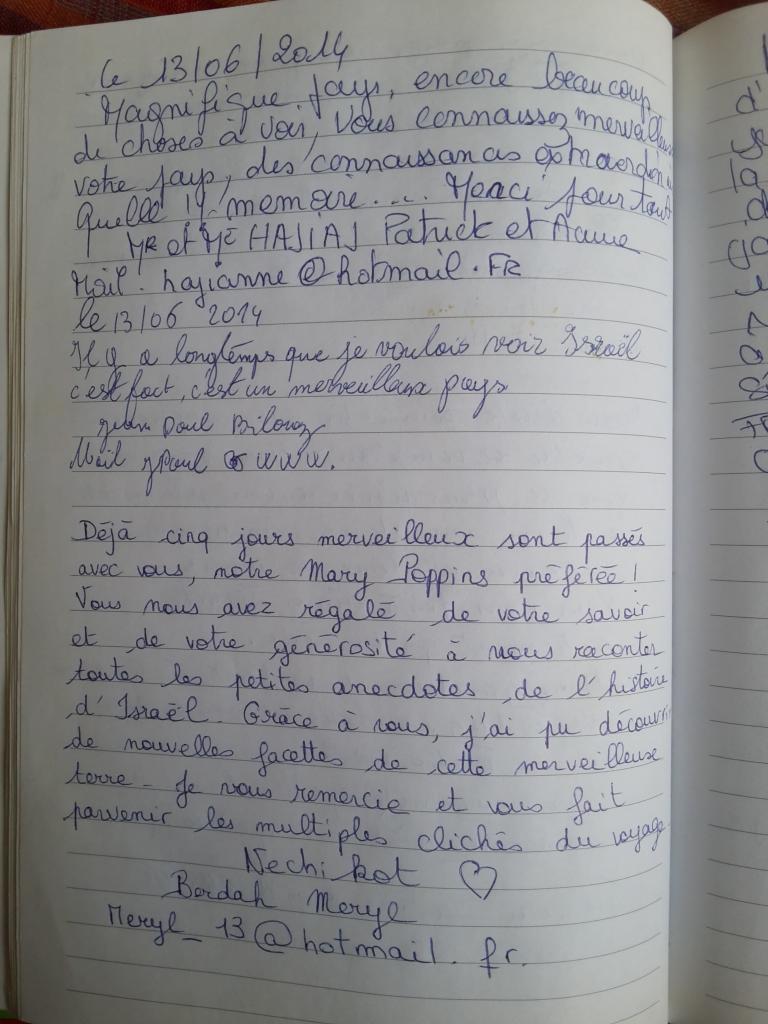 Le 13/06/2014
Magnifique pays, encore beaucoup
de choses à voir, Vous connaissez
votre pays, des connaissances
Quelle !! memoire.... Merci pour tout
Mr et Me HAJIAJ Patrick et
Mail. hajianne@hotmail.FR
le 13/06 2014
Il y a longtemps que je voulois voir Israël
c'est fait, c'est un merveilleux pays
Jean Paul
Mail JPaul @ www.
Déjà cinq jours merveilleux sont passés
avec vous, notre Mary Poppins préférée !
Vous nous avez régalé de votre savoir
et de votre générosité à nous raconter
toutes les petites anecdotes de l'histoire
d'Israël. Grâce à vous, j'ai pu découvrir
de nouvelles facettes de cette merveilleuse
terre - Je vous remercie et vous fait
parvenir les multiples clichés du voyage
Nechikot ♡
Berdah Meryl
Meryl_13@hotmail.fr.